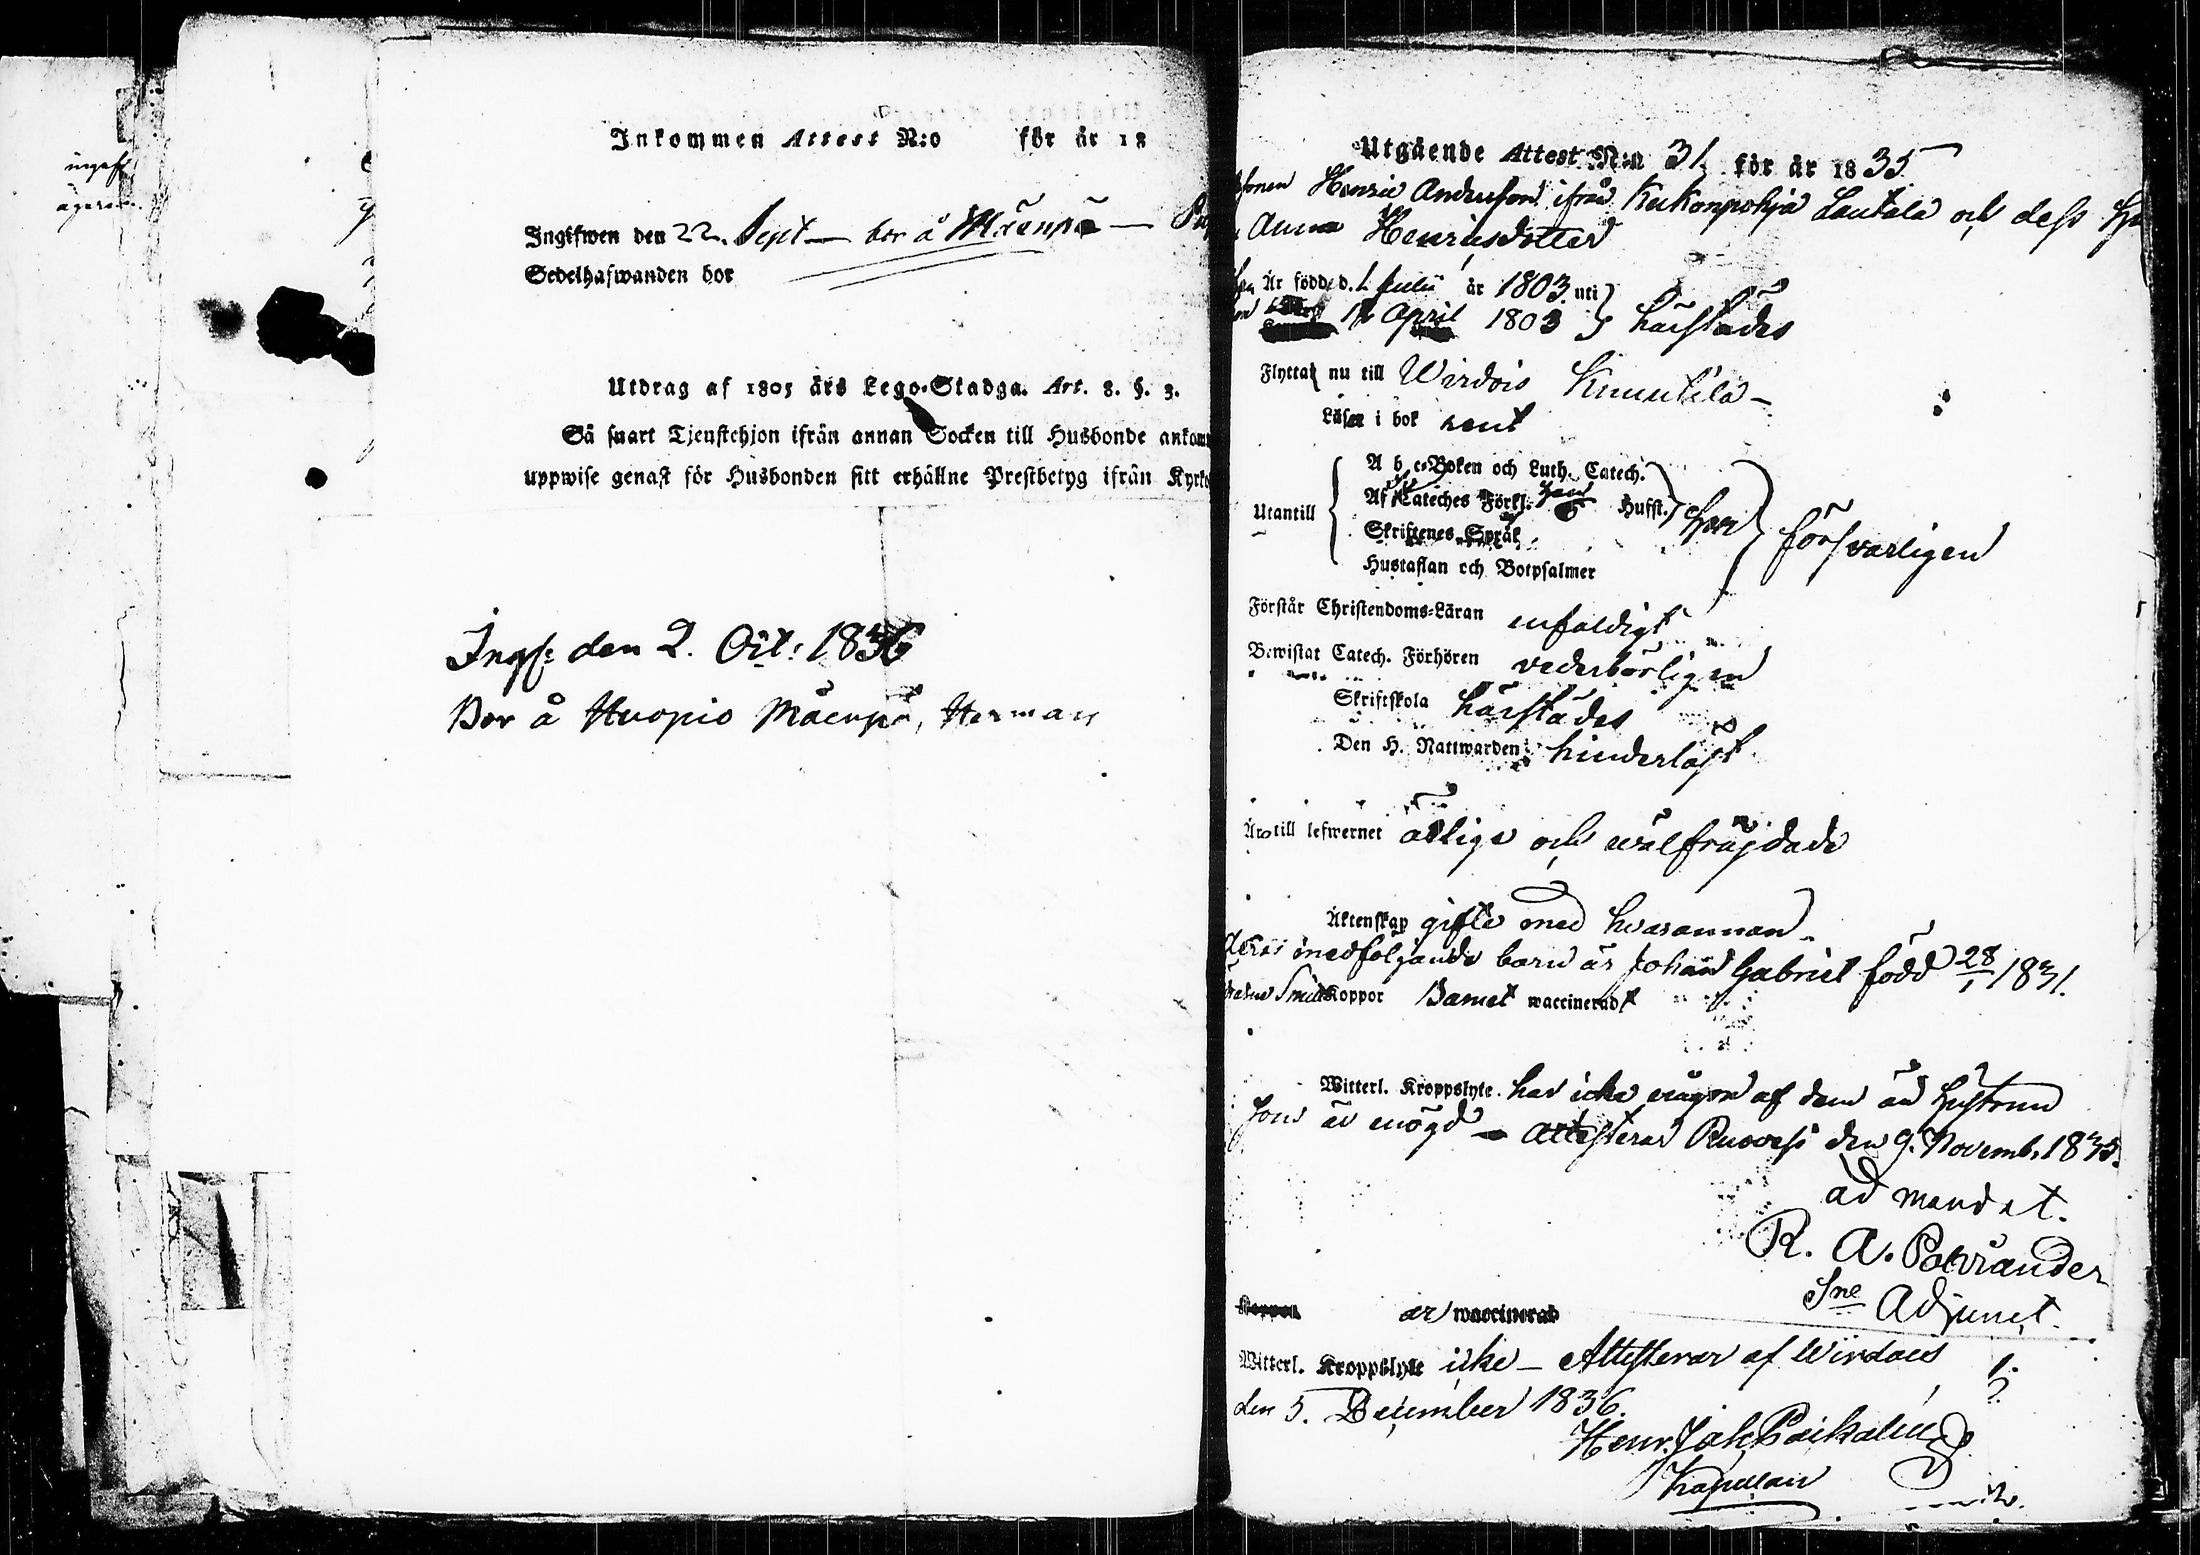 ingift
Inkommen Attest N:o för år 18
Ingifwen den 22. Sept — bor å Mäenpä —
Sedelhafwanden bor
Utdrag af 1805 års Lego-Stadga. Art. 8. §. 3.
Så snart Tjenstehjon ifrån annan Socken till Husbonde ankom
uppwise genast för Husbonden sitt erhållne Prestbetyg ifrån Kyrko
Ingf: den 2. Oct: 1836
Bor å Kuopio Mäenpä, Herman
Utgående Attest N:o 31. för år 1835
sonen Henric Andersson ifrån Kukonpohja Lautala och dess
Anna Henricsdotter
Är född d. 1 Julii år 1803 uti
April 1803 härstädes
Flytta nu till Wirdois Kinutila —
Läser i bok rent
Utantill
A b c-Boken och Luth. Catech.
Af Cateches Förkl. Hufst.
Skriftenes Språk
Hustaflan och Botpsalmer
försvarligen
Förstår Christendoms-Läran enfaldigt
Bewistat Catech. Förhören vederbörligen
Skriftskola härstädes
Den H. Nattwarden hinderlöst
Äro till lefwernet ärlige och wälfräjdade
Äktenskap gifte med hvarannan
deras medföljande barn är Johan Gabriel född 28/1 1831.
Smittkoppor Barnet waccineradt
Witterl. Kroppslyte har icke någon af dem än Hustrun
som är enögd — attesterar Ruovesi den 9. Novemb. 1835.
ad mandat.
R. A. Polviander
Sne Adjunct.
Koppor är waccinerad
Witterl. Kroppslyte icke — Attesterar af Wirdois
den 5. December 1836.
Henr. Joh.
Kapellan